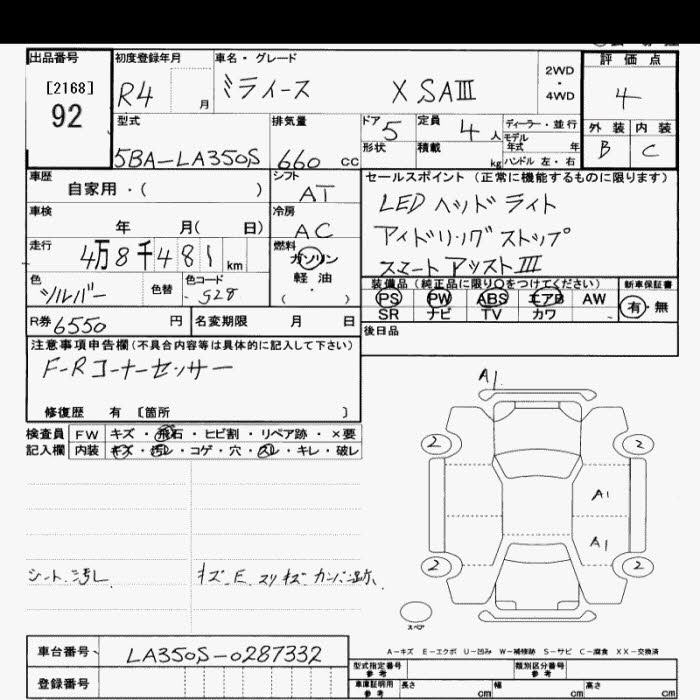 出品番号 初度登録年月 車名・グレード 評価点
[2168] R4 月 ミライース X SAⅢ 2WD・4WD 4
92
型式 排気量 ドア 5 定員 4人 ディーラー・並行 外装 内装
5BA-LA350S 660 cc 形状 積載 kg モデル年式 年 B C
ハンドル 左・右
車歴 シフト セールスポイント (正常に機能するものに限ります)
自家用・( ) AT LEDヘッドライト
車検 冷房
年 月( 日) AC アイドリングストップ
走行 燃料
4万8千481 km ガソリン スマートアシストⅢ
色 色替 色コード 軽油
シルバー S28 ( ・ ) 装備品 (純正品に限り○をつけてください) 新車保証書
PS PW ABS エアB AW 有・無
SR ナビ TV カワ
R券 6550 円 名変期限 月 日 後日品
注意事項申告欄(不具合内容等は具体的に記入して下さい)
F-Rコーナーセンサー
修復歴 有 〔箇所 〕
検査員 FW キズ・飛石・ヒビ割・リペア跡・×要
記入欄 内装 キズ・汚レ・コゲ・穴・スレ・キレ・破レ
A1
2 2
A1
A1
2 2
シート汚レ キズ、E、スリキズ カンバン跡、
スペア
A-キズ E-エクボ U-凹み W-補修跡 S-サビ C-腐食 XX-交換済
車台番号 LA350S-0287332
型式指定番号 参考 類別区分番号 参考
登録番号 車庫証明用 参考 長さ cm 幅 cm 高さ cm